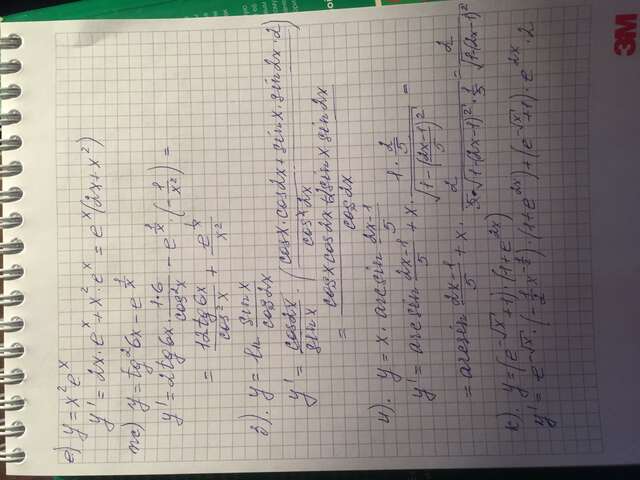 е) y = x²eˣ
y' = 2x · eˣ + x² · eˣ = eˣ(2x + x²)
ж) y = tg²6x − e^(1/x)
y' = 2tg6x · (1·6)/(cos²x) − e^(1/x) · (−1/x²) =
= (12tg6x)/(cos²x) + (e^(1/x))/(x²)
з). y = ln (sinx)/(cos2x)
y' = (cos2x)/(sinx) · ((cosx · cos2x + sinx · sin2x · 2)/(cos²2x))
= (cosx cos2x + 2sinx · sin2x)/(cos2x)
и). y = x · arcsin (2x−1)/5
y' = arcsin (2x−1)/5 + x · (1 · 2/5)/(√(1 − ((2x−1)/5)²)) =
= arcsin (2x−1)/5 + x · 2/(5·√(1·(2x−1)² · 1/5)) = 2/(√(1·(2x−1)²))
к). y = (e^(−√x) + 1) · (1 + e^(2x))
y' = e^(−√x) · (−1/2 · x^(−1/2)) · (1 + e^(2x)) + (e^(−√x) + 1) · e^(2x) · 2
3M